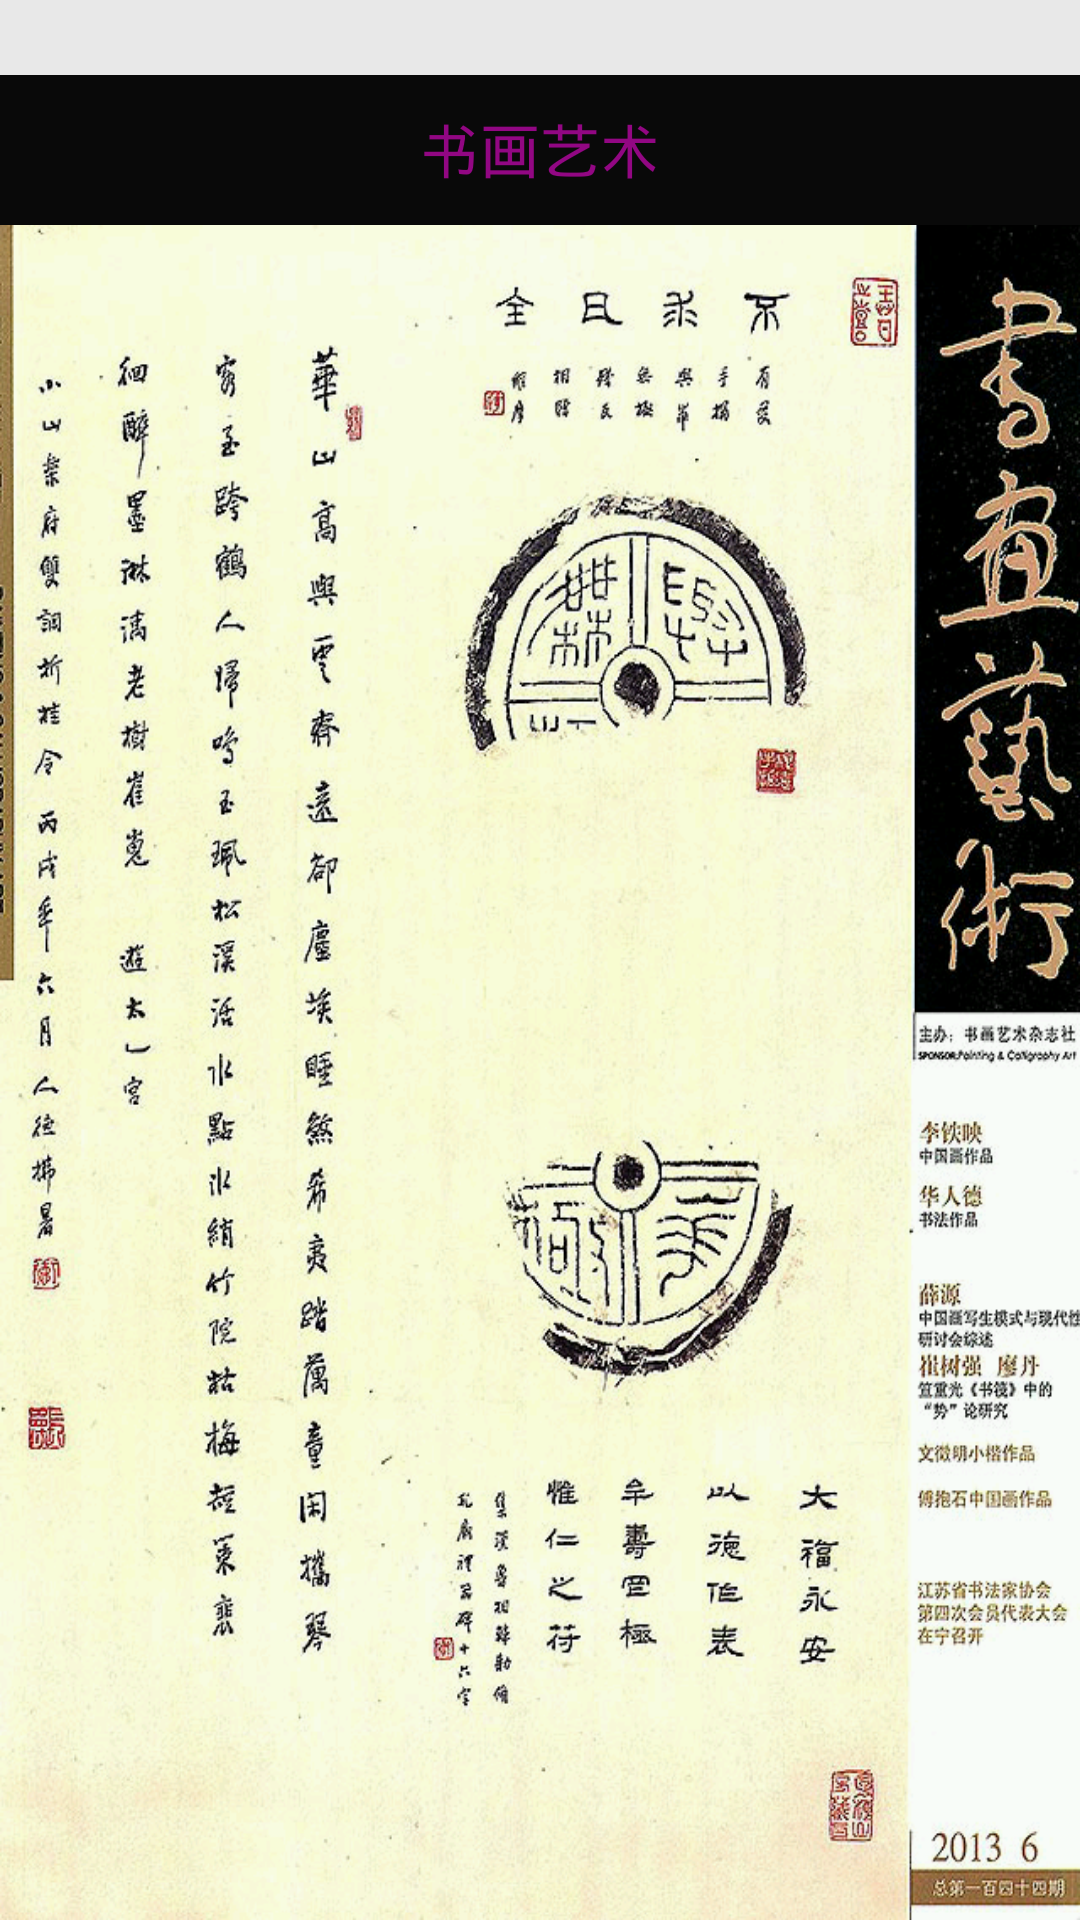 书画艺术
書畫藝術
主办：书画艺术杂志社
SPONSOR:Painting & Calligraphy Art
李铁映
中国画作品
华人德
书法作品
薛源
中国画写生模式与现代性
研讨会综述
崔树强 廖丹
笪重光《书筏》中的
“势”论研究
文徵明小楷作品
傅抱石中国画作品
江苏省书法家协会
第四次会员代表大会
在宁召开
2013 6
总第一百四十四期
大福永安
以德作表
年壽罔極
惟仁之符
集漢魯相韓勑脩
孔廟禮器碑十六字
華山高與雲齊遠卻塵埃睡煞希夷踏萬童閑攜琴
客至跨鶴人歸鳴玉珮松溪活水點冰綃竹院枯梅
徊醉墨淋漓老樹崔嵬 遊太乙宮
小山樂府雙調折桂令丙戌年六月人德揮暑